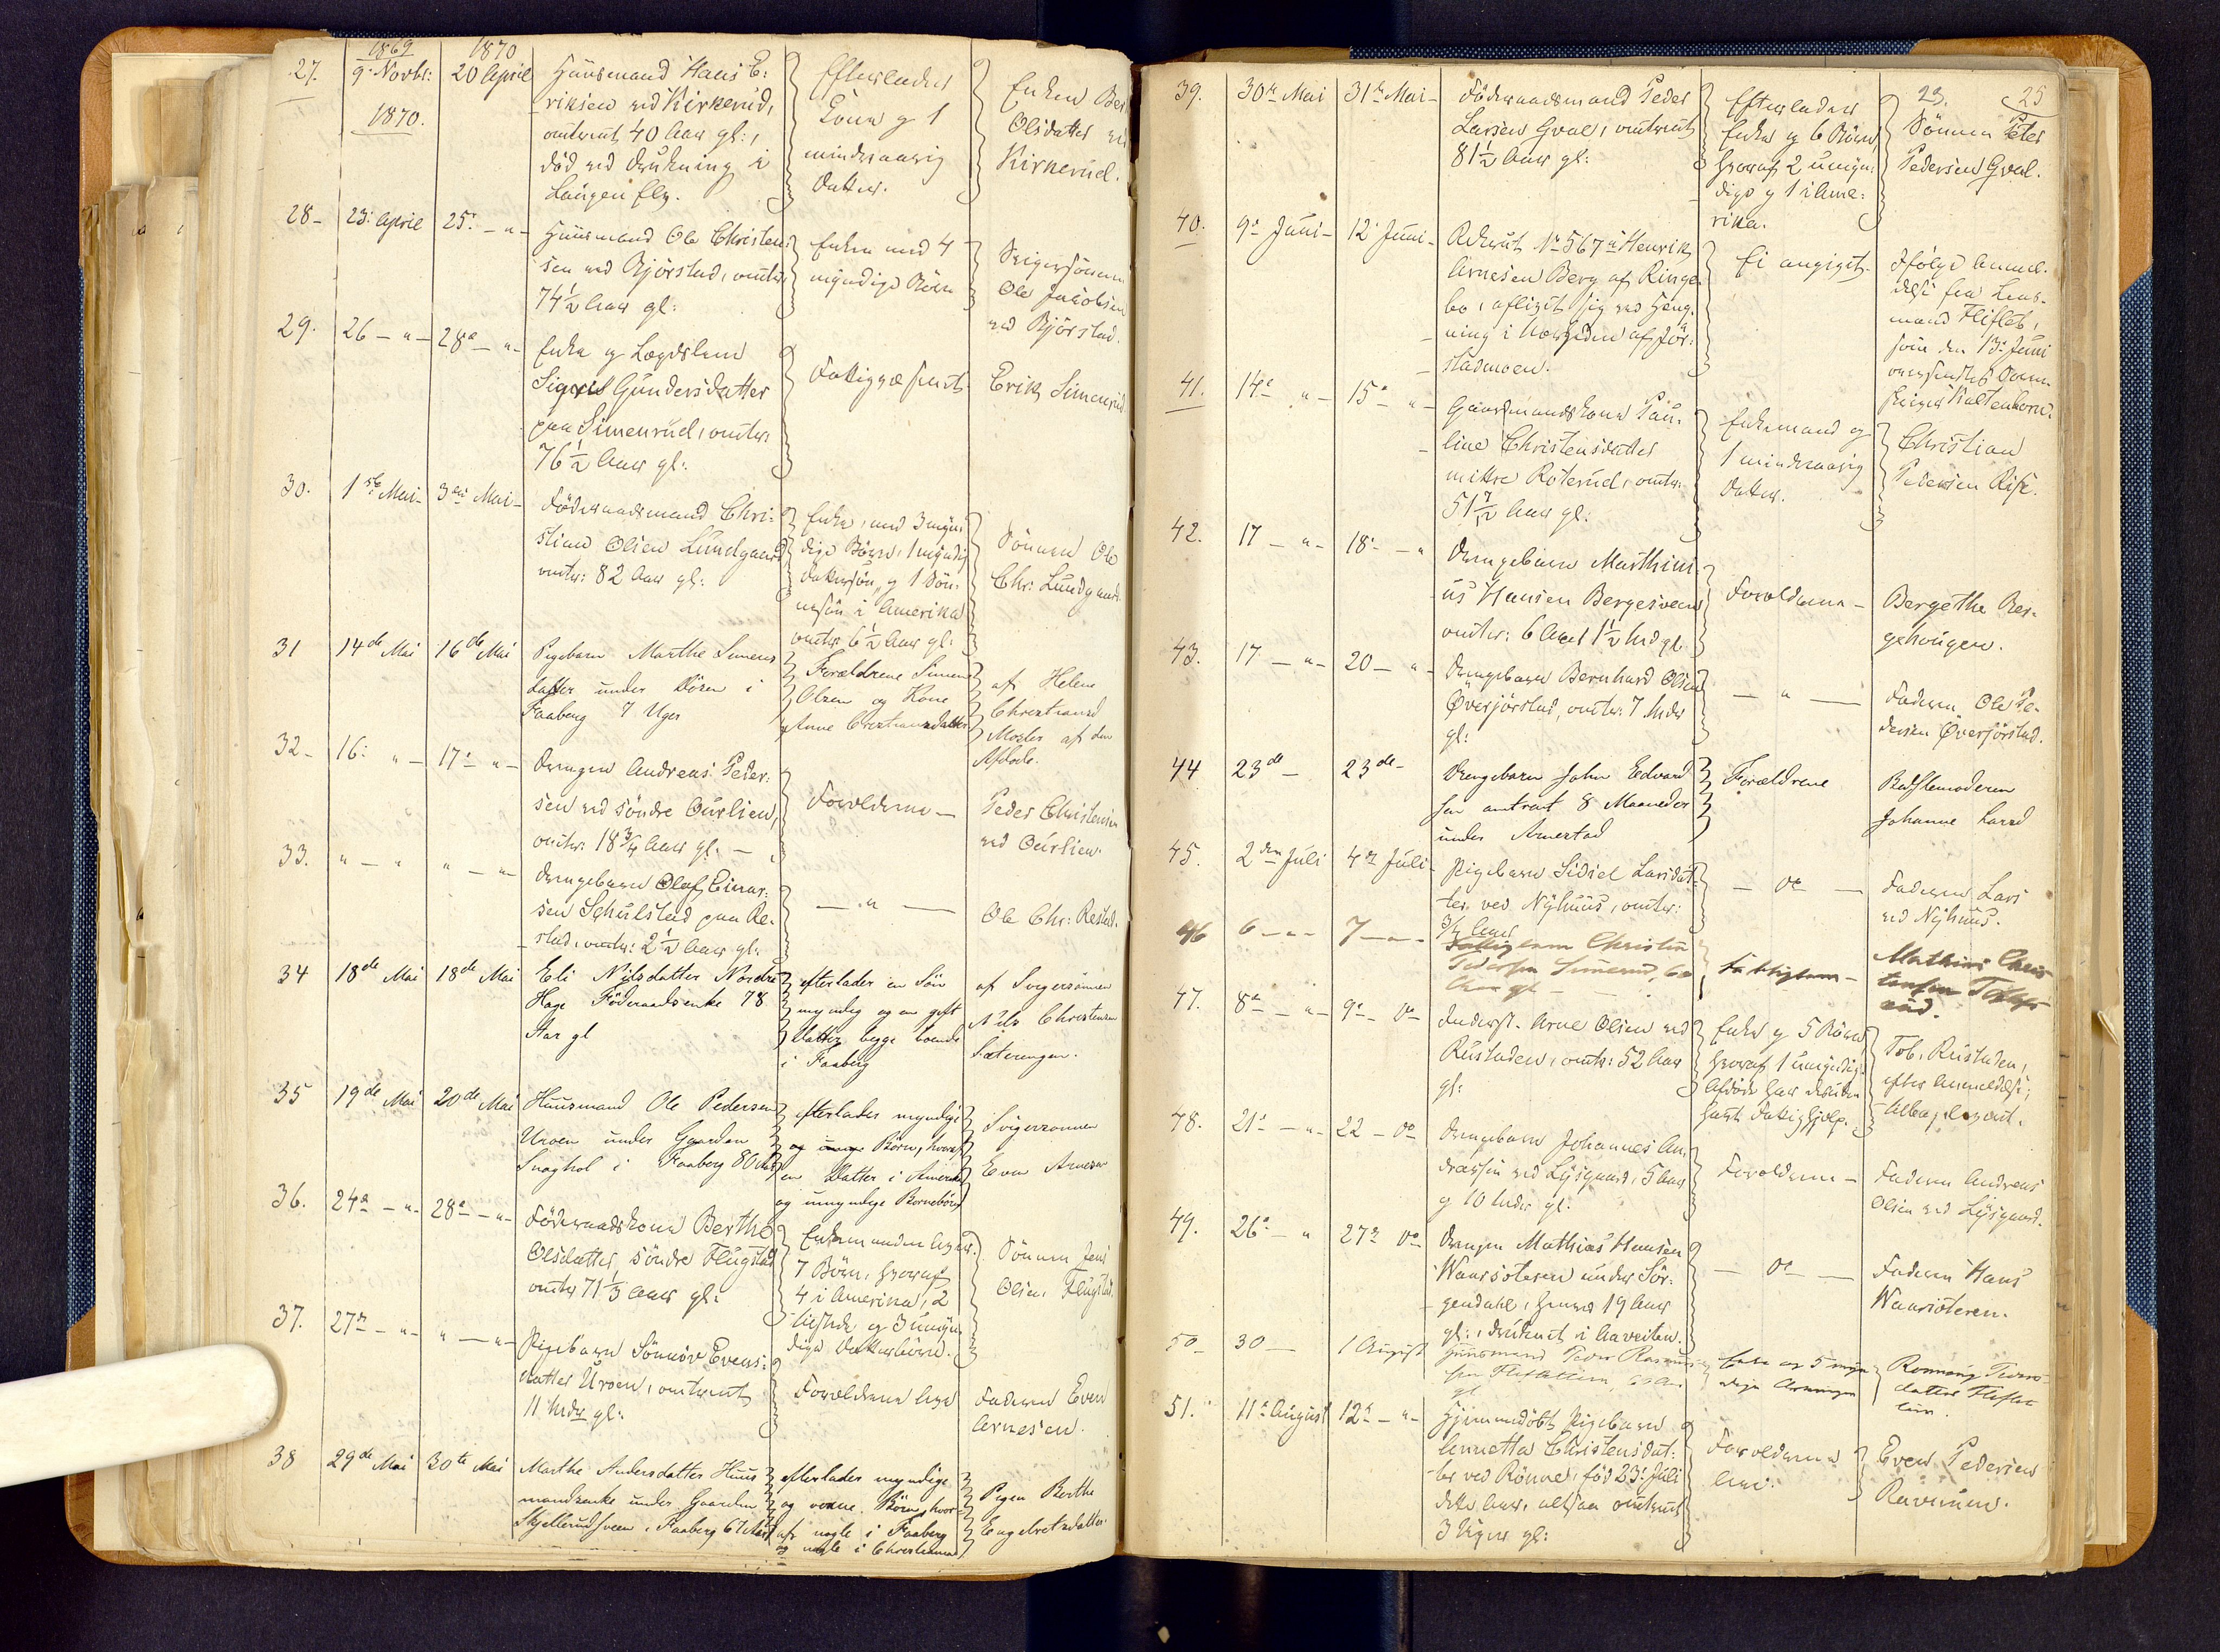 1869
1870
27.
9. Novbr:
20 April
Huusmand Hans E:
riksen ved Kirkerud,
omtrent 40 Aar gl:,
död ved Drukning i
Laugen elv.
Efterlader
Kone og 1
mindreaarig
Datter.
Enken
Olsdatter
Kirkerud.
1870.
28-
23: April
25: - " -
Huusmand Ole Christen-
sen ved Björstad, omtr:
74½ Aar gl:
Enke med 4
myndige Börn
Svigersönnen
Ole Jacobsen
ved Björstad.
29.
26 - " -
28de - " -
Enke og Lægdslem
Gundersdatter
paa Simenrud, omtr:
76½ Aar gl:
Erik Simenrud
30.
1ste Mai-
3die Mai-
Föderaadsmand Chri-
stian Olsen Lundgaard
omtr: 82 Aar gl:
Enke, med 3 myn-
dige Börn, 1 myndig
Dattersön, og 1 Sön-
nesön i Amerika
omtr 6½ Aar gl:
Sönnen Ole
Chr: Lundgaard
31
14de Mai
16de Mai
Pigebarn Marthe Simens
datter under Dösen i
Faaberg 7 Uger
Forældrene Simen
Olsen og Kone
Anne Christiansdatter
af Helene
Christiansd
Moster af den
Afdøde.
32-
16: " -
17de " -
Drengen Andreas Peder-
sen ved söndre Ourlien,
omtr: 18¾ Aar gl: -
Forældrene -
Peder Christensen
ved Ourlien.
33.
" - "
" - " -
Drengebarn Olaf Einar-
sen Schulstad paa Re-
stad, omtr: 2½ Aar gl:
- " -
Ole Chr: Restad.
34
18de Mai
18de Mai
Eli Nilsdatter Nordre
Hage Föderaadsenke 78
Aar gl
efterlader en Sön
myndig og en gift
Datter begge boende
i Faaberg
af Svigersönnen
Nils Christensen
Sæterengen.
35
19de Mai
20de Mai
Huusmand Ole Pedersen
Uroen under Gaarden
Svaghol i Faaberg 80 Aar
efterlader myndige
og Börn, hvoraf
en Datter i Amerika
og umyndige Bornebörn
Svigersonnen
Even Arnesen
36.
24de - " -
28de - " -
Föderaadskone Berthe
Olsdatter, söndre Flugstad
omtr 71⅓ Aar gl:
Enkemanden
7 Börn, hvoraf
4 i Amerika, 2
og 3 umyn-
dige Datterbörn.
Sönnen Jens
Olsen Flugstad.
37.
27de - " -
" - " -
Pigebarn Sönnöv Evens-
datter Uroen, omtrent
11 Mdr gl:
Forældrene
Faderen Even
Arnesen.
38
29de Mai
30te Mai
Marthe Andersdatter Huus
mandsenke under Gaarden
Skjellerudsveen, Faaberg 67 Aar
efterlader myndige
og voxne Börn, hvor-
af nogle i Faaberg
og nogle i Christiania
Pigen Berthe
Engebretsdatter
23.
25
39.
30te Mai
31te Mai-
Föderaadsmand Peder
Larsen Hval, omtrent
81½ Aar gl:
Efterlader
Enke og 6 Börn,
hvoraf 2 umyn-
dige og 1 i Ame-
rika.
Sönnen Peter
Pedersen Hval.
40.
9de Juni-
12: Juni-
Rekrut No 567 Henrik
Arnesen Berg af Ringe-
bo, aflivet sig ved Hæng-
ning i Nærheden af Jör-
stadmoen.
Ei angivet.
Ifölge Anmel-
delse fra Lens-
mand Flifleb,
som den 13de Juni
oversendtes
Kaltenborn.
41.
14de " -
15de " -
Gaardmandskone Pau-
line Christensdatter
mittre Roterud, omtr.
51 7/12 Aar gl:
Enkemand og
1 mindreaarig
Datter.
Christian
Pedersen Rise.
42.
17 - " -
18de - "
Drengebarn Marthini-
us Hansen Bergesveen
omtr: 6 Aar 1½ Md gl.
Forældrene -
Bergethe Ber-
gehaugen.
43.
17 - " -
20 - " -
Drengebarn Bernhard Olsen
Överjörstad, omtr: 7 Mdr
gl:
- " -
Faderen Ole Pe-
dersen Överjörstad.
44
23de -
23de -
Drengebarn Johan Edvard
sen omtrent 8 Maaneder
under Arnestad
Forældrene
Bedstemoderen
Johanne Larsd
45.
2den Juli
4de Juli
Pigebarn Sidsel Larsdat-
ter ved Nyhuus, omtr:
¾ Aar
- Do -
Faderen Lars
ved Nyhuus.
46
6 - " -
7 - " -
Fattiglem Christen
Pedersen Simerud,
Aar gl -
Fattiglem -
Mathias Chris
tensen
47.
8de - " -
9de - Do
Inderst. Arne Olsen ved
Rustaden, omtr: 52 Aar
gl:
Enke og 5 Börn
hvoraf 1 umyndig.
Afdöde har
havt Fattighjelp.
Tob. Rustaden,
efter Anmeldelse,
48.
21de - " -
22 - Do
Drengebarn Johannes An-
dreassen ved Lysgaard, 5 Aar
og 10 Mdr gl:
Forældrene -
Faderen Andreas
Olsen ved Lysgaard.
49.
26de - "
27de Do
Drengen Mathias Hansen
Waarsæteren under Jör-
gendahl, 19 Aar
gl:, druknet i
- Do -
Faderen Hans
Waarsæteren.
50
30 -
1 August
Huusmand Peder Rasmus-
sen
gl
Enke og 5 myn-
dige
Ronnaug Peders-
datter
51.
11te August
12te - " -
Hjemmedöbt Pigebarn
Annetta Christensdat-
ter ved Rönne, föd 23: Juli
dette Aar, altsaa omtrent
3 Uger gl:
Forældrene
Even Pedersen